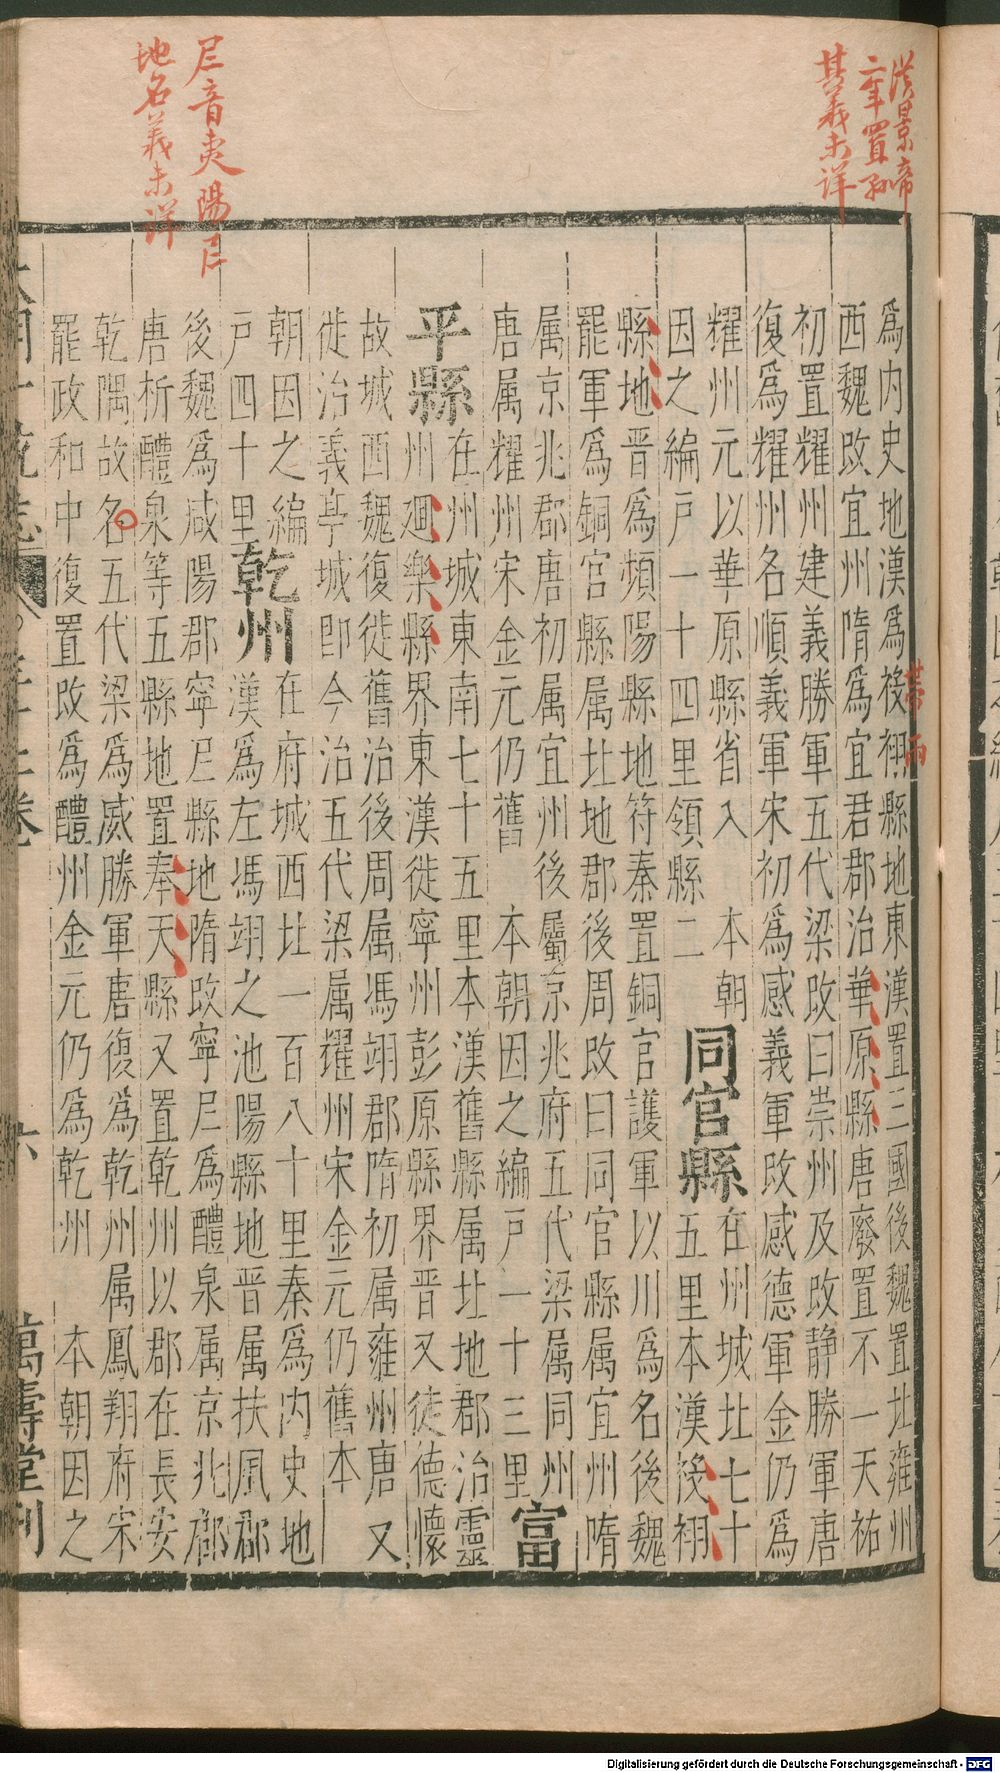 漢景帝
二年置祋
其義未詳
𡰥音夷陽𡰥
地名義未詳
爲内史地漢爲祋祤縣地東漢置三國後魏置北雍州
西魏改宜州隋爲宜君郡治華原縣唐廢置不一天祐
初置耀州建義勝軍五代梁改曰崇州及改静勝軍唐
復爲耀州名順義軍宋初爲感義軍改感德軍金仍爲
耀州元以華原縣省入 本朝
因之編户一十四里領縣二
同官縣
在州城北七十
五里本漢祋祤
縣地晋爲頻陽縣地符秦置銅官護軍以川爲名後魏
罷軍爲銅官縣属北地郡後周改曰同官縣属宜州隋
属京兆郡唐初属宜州後屬京兆府五代梁属同州
唐属耀州宋金元仍舊 本朝因之編户一十三里
富
平縣
在州城東南七十五里本漢舊縣属北地郡治靈
州廻樂縣界東漢徙寧州彭原縣界晋又徙德懷
故城西魏復徙舊治後周属馮翊郡隋初属雍州唐又
徙治義亭城即今治五代梁属耀州宋金元仍舊本
朝因之編
户四十里
乾州
在府城西北一百八十里秦爲内史地
漢爲左馮翊之池陽縣地晋属扶風郡
後魏爲咸陽郡寧𡰥縣地隋改寧𡰥爲醴泉属京兆郡
唐析醴泉等五縣地置奉天縣又置乾州以郡在長安
乾隅故名五代梁爲威勝軍唐復爲乾州属鳳翔府宋
罷政和中復置改爲醴州金元仍爲乾州 本朝因之
六 萬壽堂刊
Digitalisierung gefördert durch die Deutsche Forschungsgemeinschaft - DFG